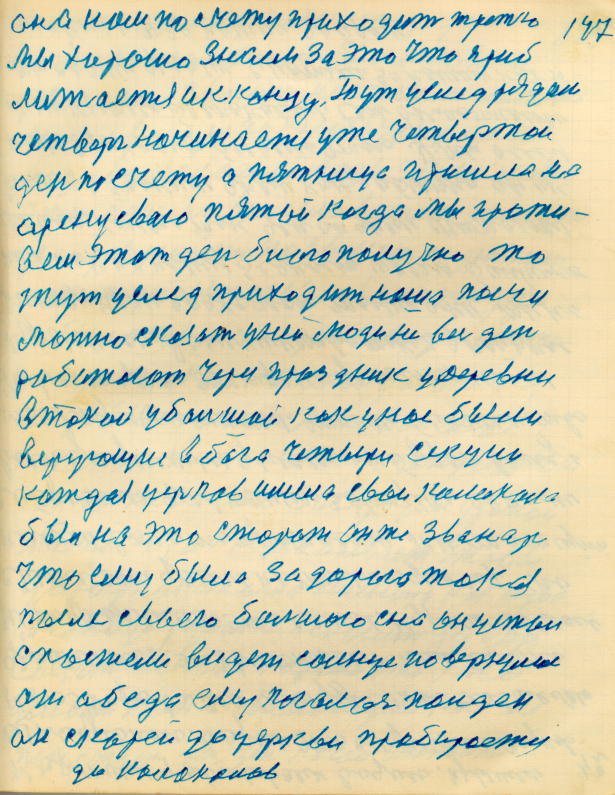 она нам по счету приходит третю 147
Мы хорошо знаем за это что приб
лижается и к концу. Тут услед рядам
четверг начинается уже четвертой
ден по счету а пятница пришла на
арену сваго пятой когда мы прожи-
вем этот ден благополучно то
тут услед приходит наша
можно сказат у ней люди не вес ден
работают чероз праздник у деревни
В такой убольшой как у нас были
верующие в бога четыри секуны
каждая церков имела свои калакола
был на это сторож он же званар
Что ему было за дорога такая
после своего болшого сна он устои
с постели видет сонце повернулос
от обеда ему погалоя полден
он скорей до церкви пробираетца
до калаколов